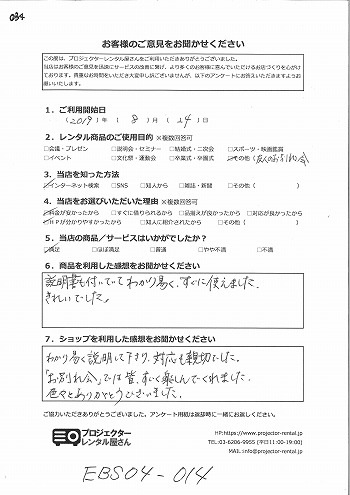 034
お客様のご意見をお聞かせください
この度は、プロジェクターレンタル屋さんをご利用いただきありがとうございました。
当店はお客様のご意見を迅速にサービスの改善に繋げ、より多くのお客様に喜んでいただけるお店づくりを心がけ
ております。貴重なお時間をいただき大変申し訳ございませんが、以下のアンケートにお答えいただきますようお
願いいたします。
1. ご利用開始日
( 2019 ) 年 ( 8 ) 月 ( 24 ) 日
2. レンタル商品のご使用目的 ※複数回答可
□会議・プレゼン □説明会・セミナー □結婚式・二次会 □スポーツ・映画鑑賞
□イベント □文化祭・運動会 □卒業式・卒園式 ☑その他 (友人のお別れ会)
3. 当店を知った方法
☑インターネット検索 □SNS □知人から □雑誌・新聞 □その他 ( )
4. 当店をお選びいただいた理由 ※複数回答可
☑料金が安かったから □すぐに借りられるから □品揃えが良かったから □対応が良かったから
☑HPが分かりやすかったから □知人に紹介されたから □その他 ( )
5. 当店の商品/サービスはいかがでしたか?
☑満足 □ほぼ満足 □普通 □やや不満 □不満
6. 商品を利用した感想をお聞かせください
説明書も付いていてわかり易く、すぐに使えました。
きれいでした。
7. ショップを利用した感想をお聞かせください
わかり易く説明して下さり、対応も親切でした。
「お別れ会」では皆、すごく楽しんでくれました。
色々とありがとうございました。
ご協力いただきありがとうございました。アンケート用紙は返却時に一緒にお返しください。
プロジェクター
レンタル屋さん
HP:https://www.projector-rental.jp
TEL:03-6206-9955 (平日11:00-19:00)
MAIL:info@projector-rental.jp
EBS04-014